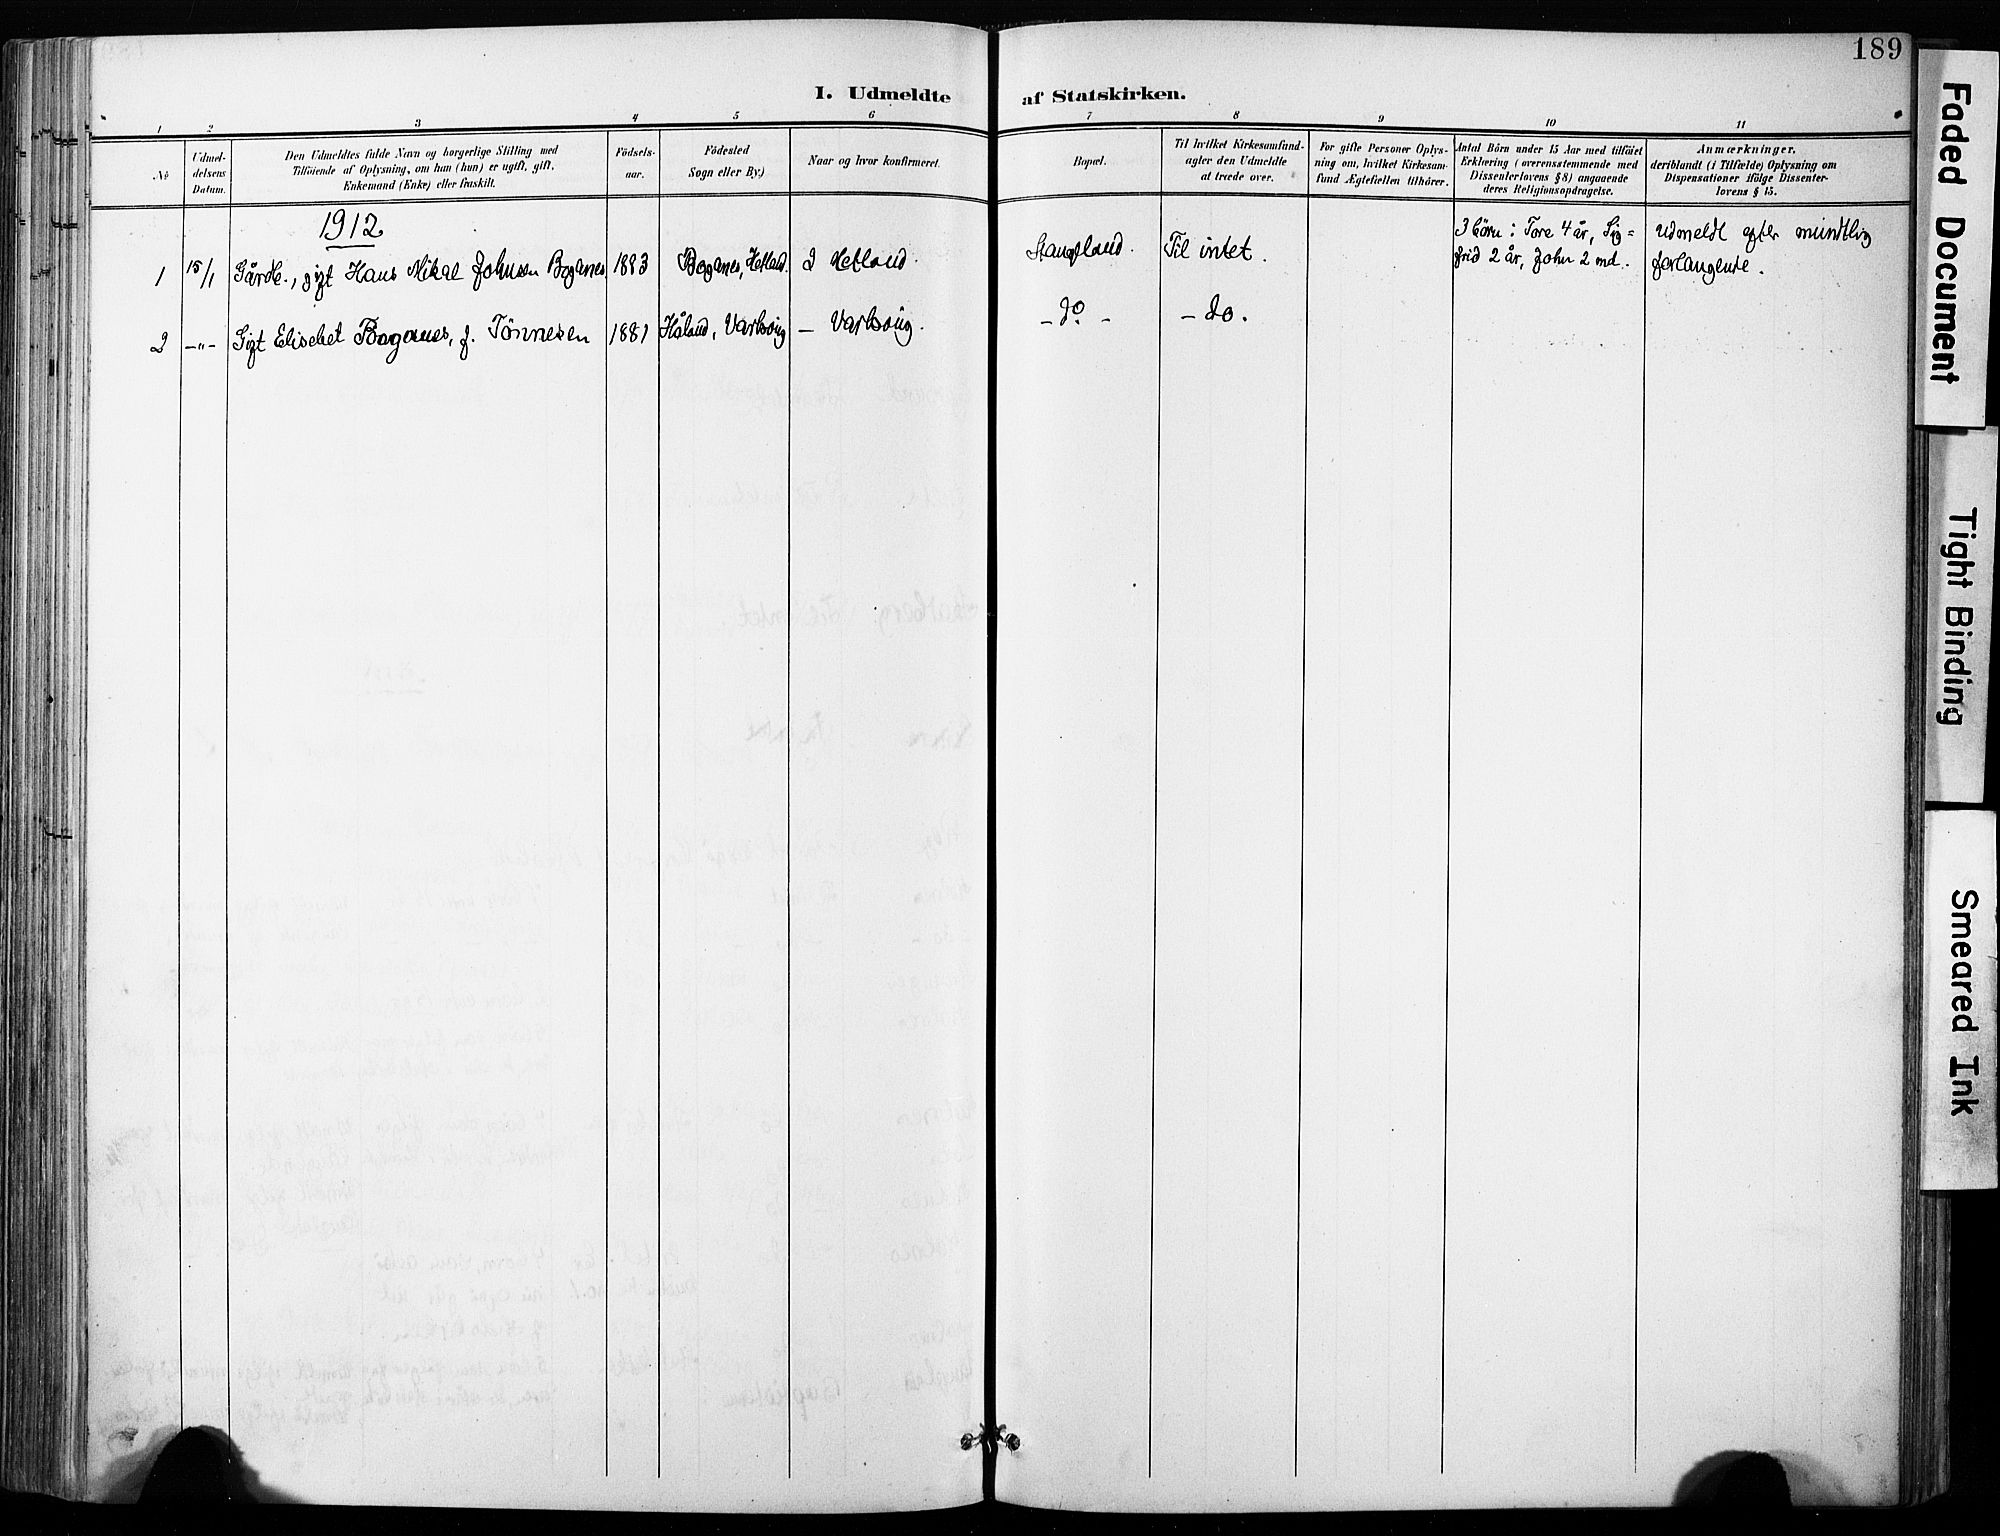 189
I. Udmeldte af Statskirken.
1 2 3 4 5 6 7 8 9 10 11
No
Udmel-
delsens
Datum.
Den Udmeldtes fulde Navn og borgerlige Stilling med
Tilföiende af Oplysning, om han (hun) er ugift, gift,
Enkemand (Enke) eller fraskilt.
Födsels-
aar.
Födested
Sogn eller By.)
Naar og hvor konfirmeret.
Bopæl.
Til hvilket Kirkesamfund
agter den Udmeldte
at træde over.
For gifte Personer Oplys-
ning om, hvilket Kirkesam-
fund Ægtefællen tilhörer.
Antal Börn under 15 Aar med tilföiet
Erklæring (overensstemmende med
Dissenterlovens § 8) angaaende
deres Religionsopdragelse.
Anmærkninger,
deriblandt (i Tilfælde) Oplysning om
Dispensationer ifölge Dissenter-
lovens § 15.
1912
1 15/1 Gårdb., gift Hans Mikal Johnsen Boganes 1883 Boganes, Hetland. I Hetland. Stangeland. Til intet. 3 börn: Tore 4 år, Sig=
frid 2 år, John 2 md. udmeldt efter mundtlig
forlangende.
2 -"- Gift Elisabet Boganes, f. Tönnesen 1881 Håland, Varhoug - Varhoug. - Do - - Do.
Faded Document
Tight Binding
Smeared Ink